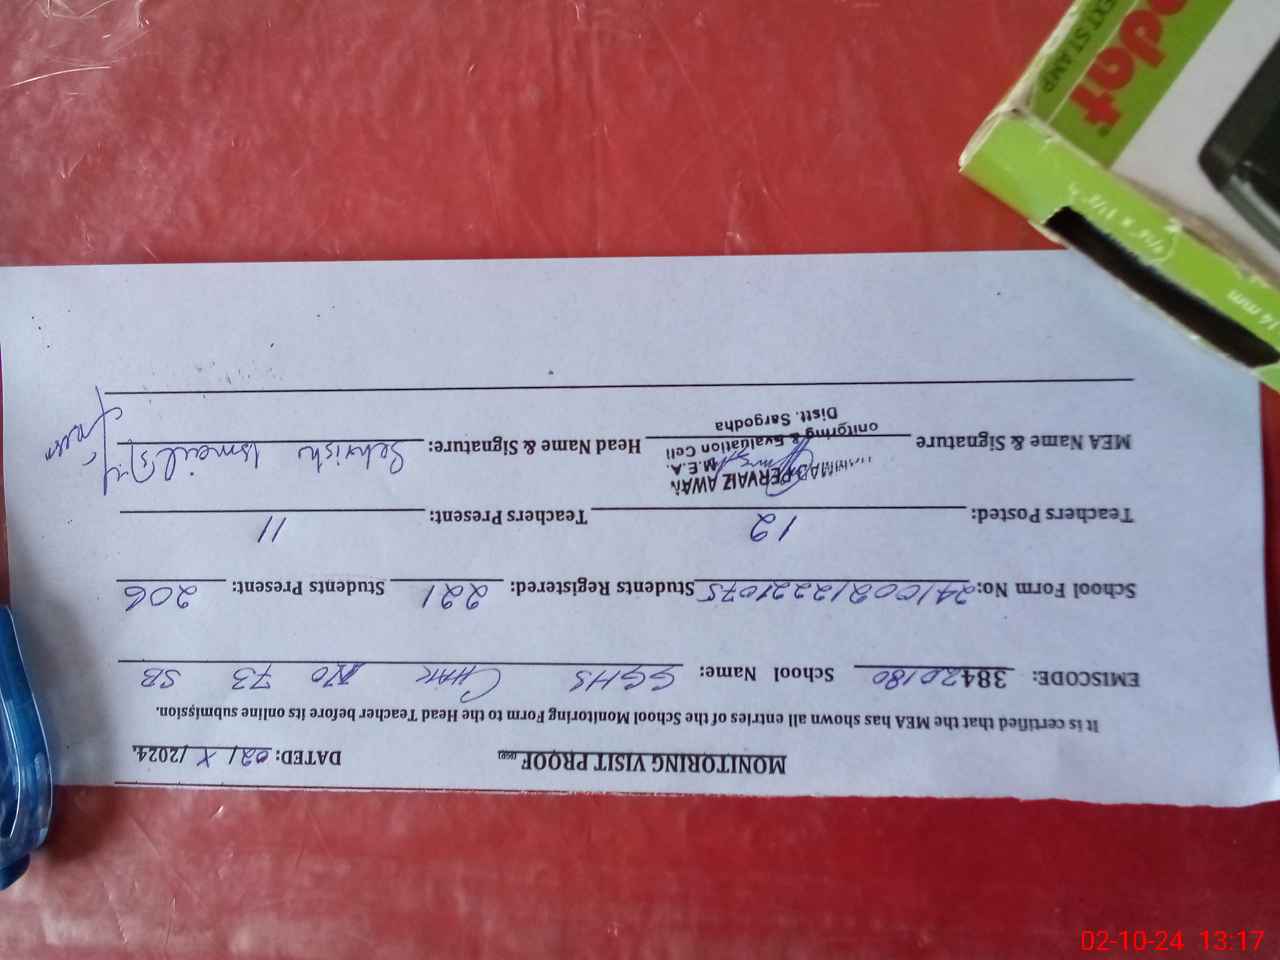 MONITORING VISIT PROOF
DATED: 02/ X /2024.
It is certified that the MEA has shown all entries of the School Monitoring Form to the Head Teacher before its online submission.
EMISCODE: 38420180 School Name: GGHS CHAK NO 73 SB
School Form No: Students Registered: 221 Students Present: 206
Teachers Posted: 12 Teachers Present: 11
MEA Name & Signature Head Name & Signature: Sehrish Ismail
PERVAIZ AWAN
M.E.A.
onitoring & Evaluation Cell
Distt. Sargodha
dat
EXT STAMP
14 mm
02-10-24 13:17